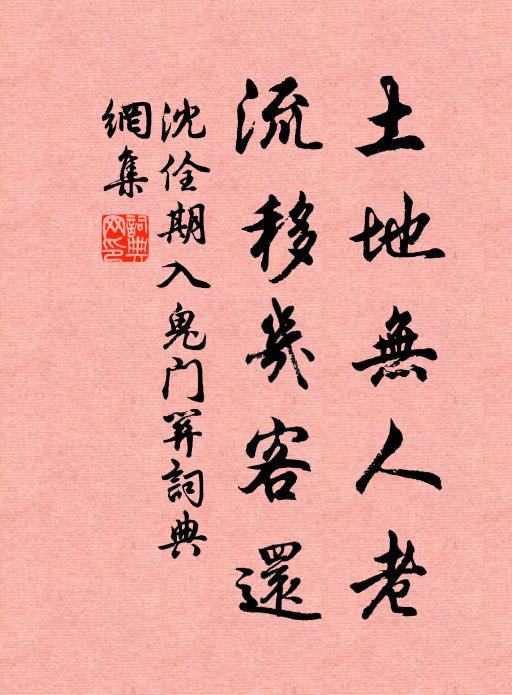 土地無人老
流移幾客還
沈佺期入鬼门関詞典
網集
詞典
网印